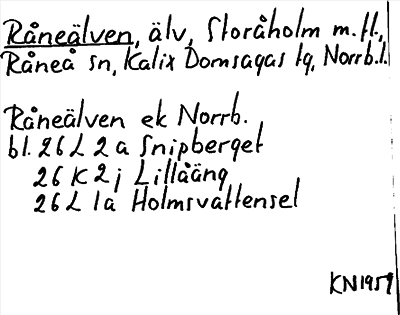 Råneälven, älv, Storåholm m.fl.,
Råneå sn, Kalix Domsagas tg, Norrb.l.
Råneälven ek Norrb.
bl. 26 L 2 a Snipberget
26 K 2 j Lillåäng
26 L 1a Holmsvattensel
KN1959